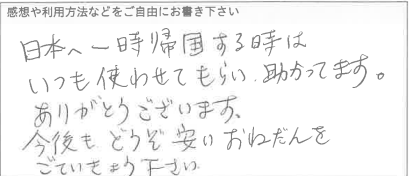 感想や利用方法などをご自由にお書き下さい
日本へ一時帰国する時は
いつも使わせてもらい、助かってます。
ありがとうございます、
今後も どうぞ 安い おねだんを
ごていきょう下さい